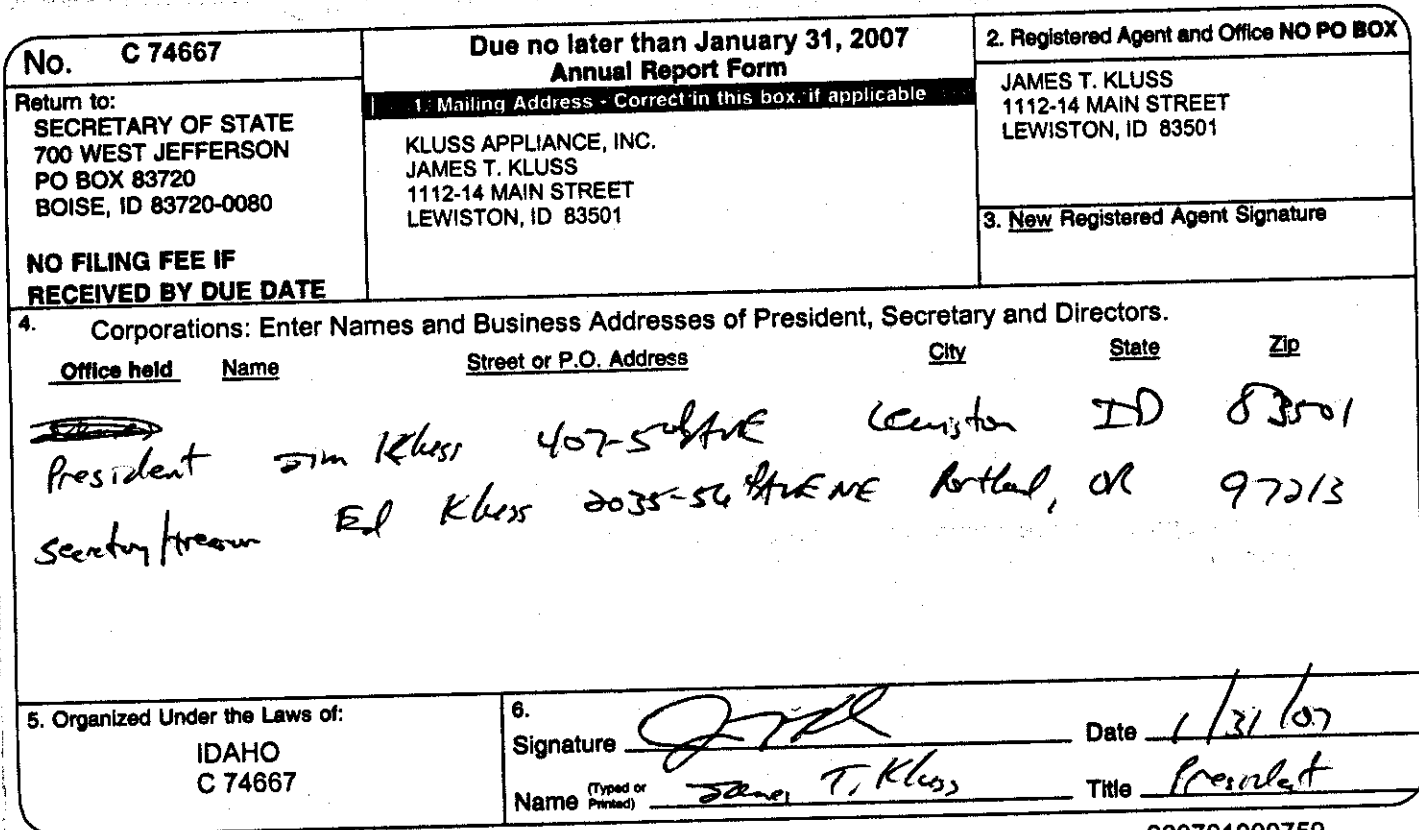 No. C 74667
Return to:
SECRETARY OF STATE
700 WEST JEFFERSON
PO BOX 83720
BOISE, ID 83720-0080
NO FILING FEE IF
RECEIVED BY DUE DATE
Due no later than January 31, 2007
Annual Report Form
1. Mailing Address - Correct in this box, if applicable
KLUSS APPLIANCE, INC.
JAMES T. KLUSS
1112-14 MAIN STREET
LEWISTON, ID 83501
2. Registered Agent and Office NO PO BOX
JAMES T. KLUSS
1112-14 MAIN STREET
LEWISTON, ID 83501
3. New Registered Agent Signature
4. Corporations: Enter Names and Business Addresses of President, Secretary and Directors.
Office held Name Street or P.O. Address City State Zip
President Jim Kluss 407-5th AVE Lewiston ID 83501
Secretary/treasur Ed Kluss 2035-56th AVE NE Portland, OR 97213
5. Organized Under the Laws of:
IDAHO
C 74667
6.
Signature Date 1/31/07
Name (Typed or Printed) James T. Kluss Title President